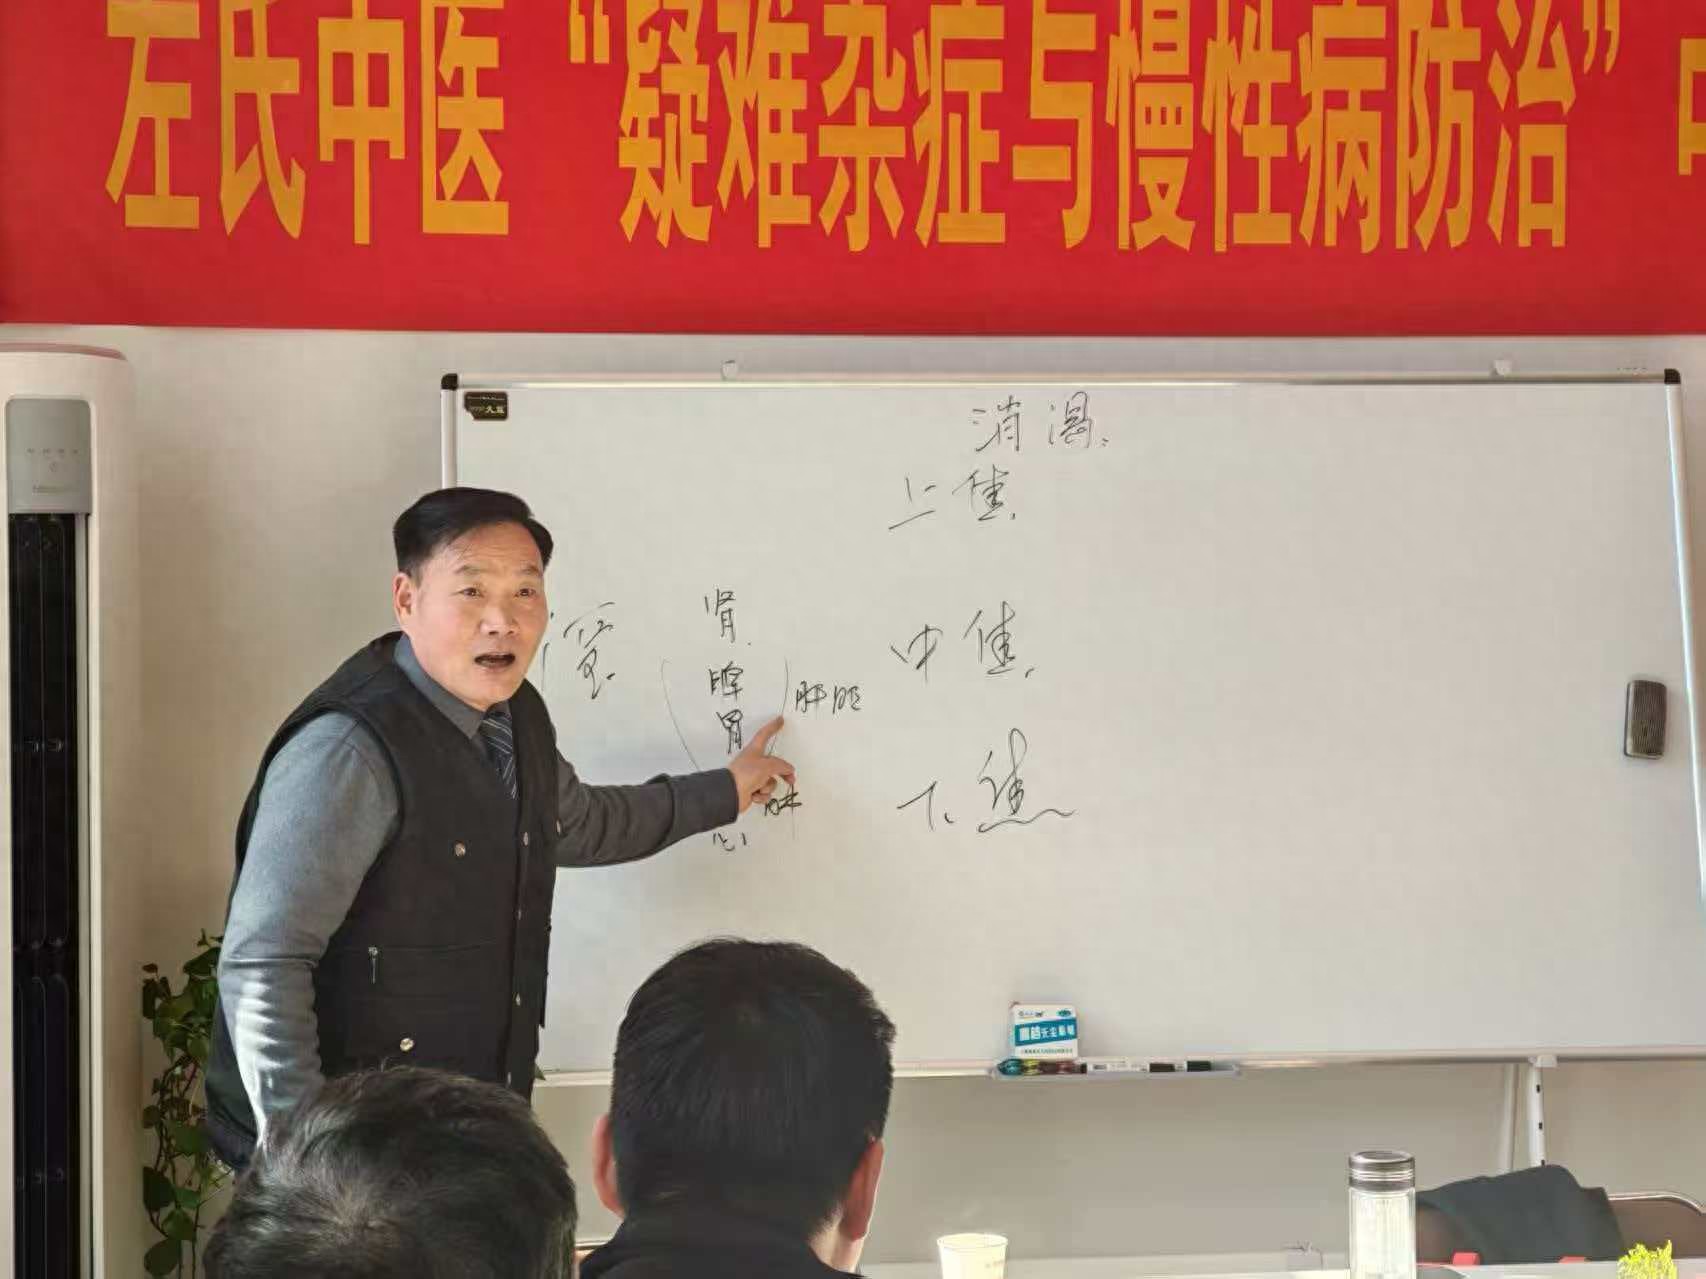 左氏中医“疑难杂症与慢性病防治”中
消渴
上焦
中焦
下焦
肾
脾
胃
肝胆
肺
心